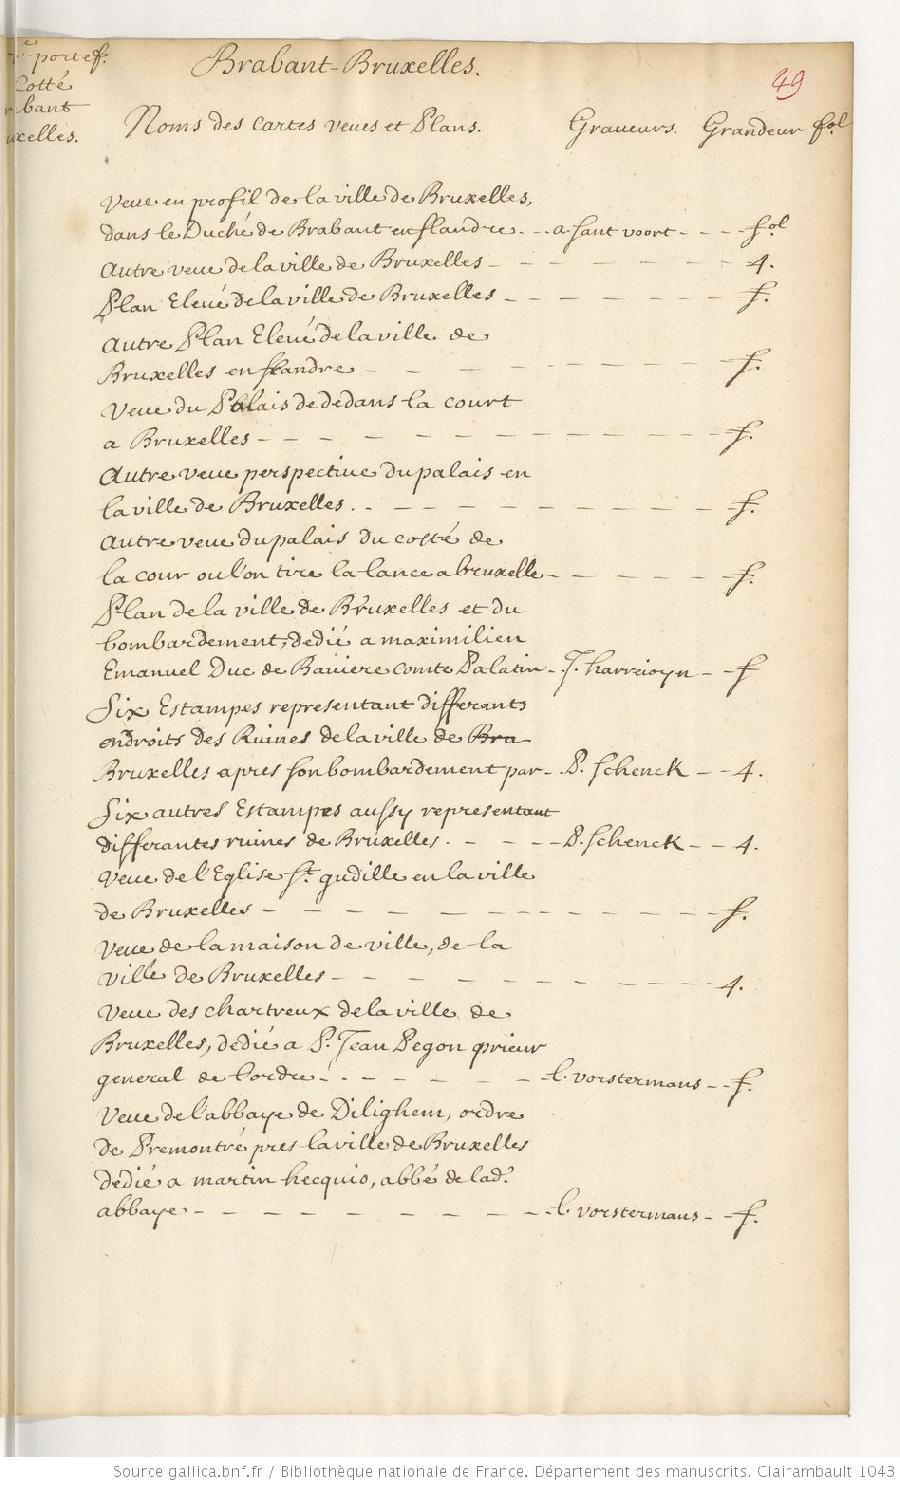 portef.
Cotté
bant
uxelles.
Brabant-Bruxelles.
49
Noms des cartes veues et Plans. Graveurs. Grandeur fol
Veue en profil de la ville de Bruxelles,
dans le Duché de Brabant en flandre - - a sant voort - - - fol
Autre veue de la ville de Bruxelles - - - - - - 4.
Plan Elevé de la ville de Bruxelles - - - - - - f.
Autre Plan Elevé de la ville de
Bruxelles en flandre - - - - - - - - f.
Veue du Palais de dedans la court
a Bruxelles - - - - - - - - - - f.
Autre veue perspective du palais en
la ville de Bruxelles. - - - - - - - - f.
Autre veue du palais du costé de
la cour ou l'on tire la lance a bruxelle - - - - - f.
Plan de la ville de Bruxelles et du
bombardement, dedié a maximilien
Emanuel Duc de Baviere comte Palatin - J. harreioyn - - f
Six Estampes representant differants
endroits des Ruines de la ville de Bru
Bruxelles apres son bombardement par - P. Schenck - - 4.
Six autres Estampes aussy representant
differantes ruines de Bruxelles. - - - - P. Schenck - - 4.
Veue de l'Eglise St. gudille en la ville
de Bruxelles - - - - - - - - - - f.
Veue de la maison de ville, de la
ville de Bruxelles - - - - - - - - 4.
Veue des chartreux de la ville de
Bruxelles, dedié a P. Jean Pegon prieur
general de l'ordre. - - - - - - l. vorstermans - - f.
Veue de l'abbaye de Dilighem, ordre
de Premontré pres la ville de Bruxelles
dédié a martin hecquio, abbé de lad.
abbaye - - - - - - - - - l. vorstermans - - f.
Source gallica.bnf.fr / Bibliothèque nationale de France. Département des manuscrits. Clairambault 1043